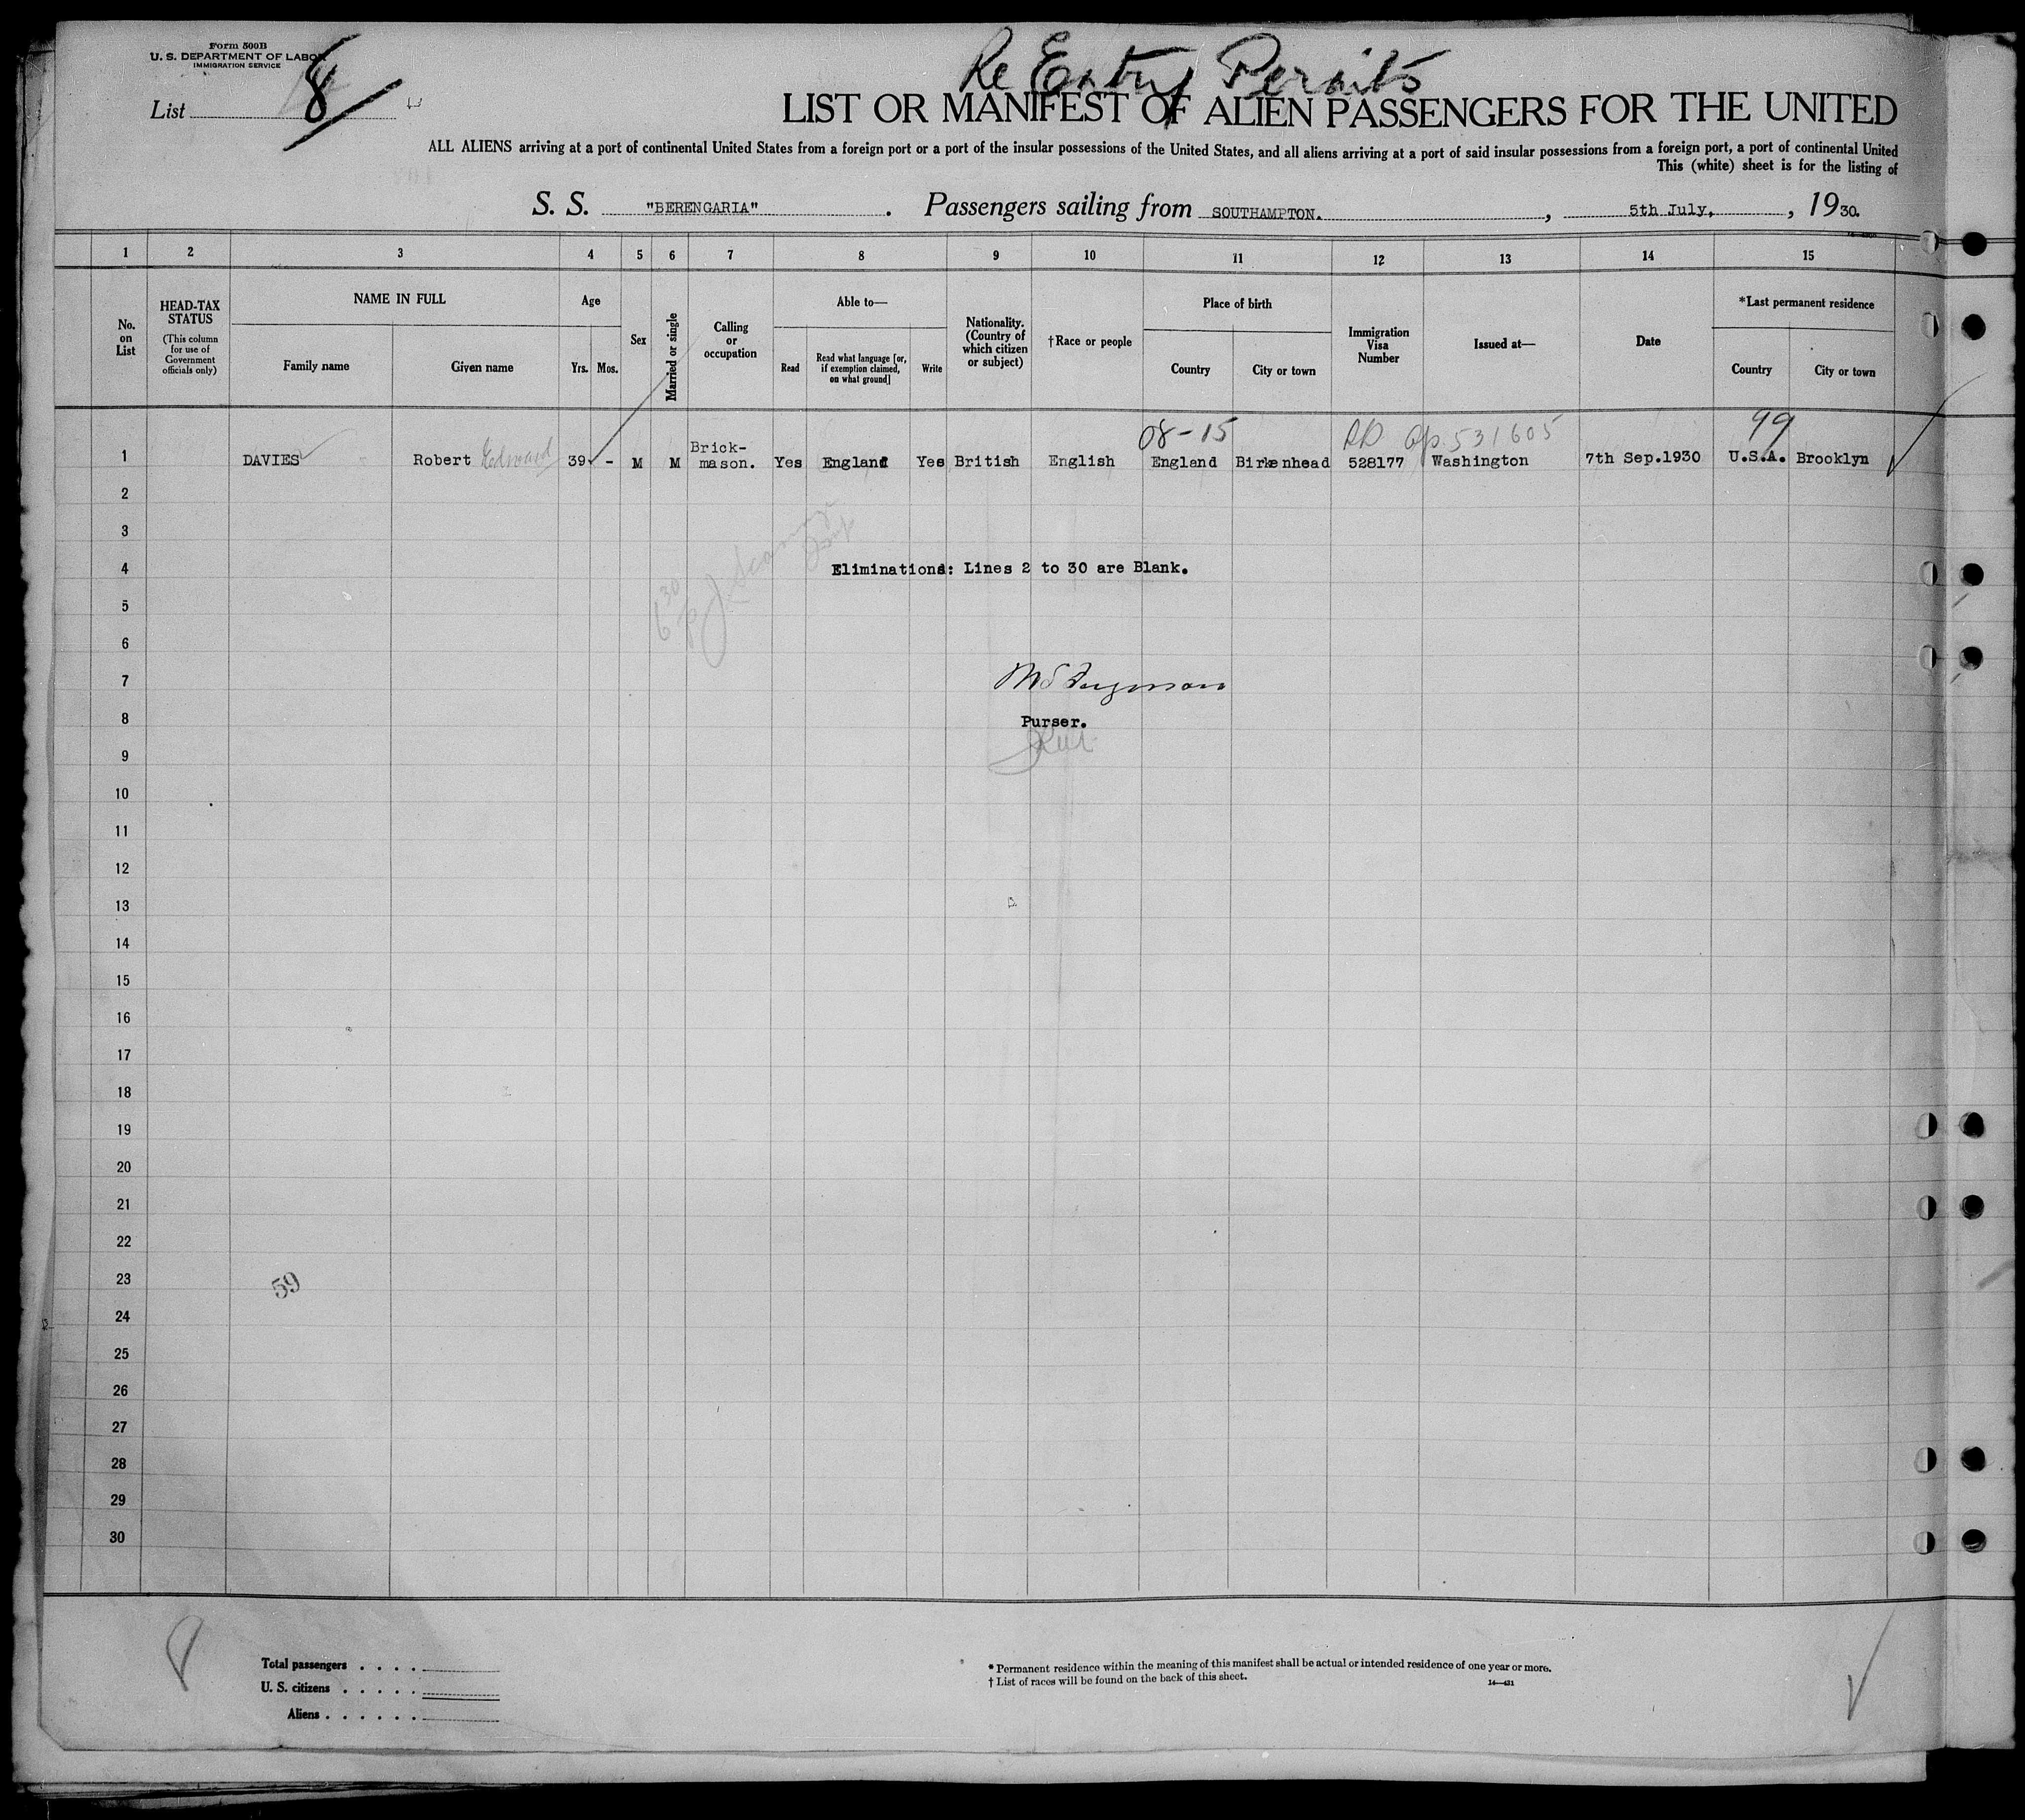 Form 500B
U. S. DEPARTMENT OF LABOR
IMMIGRATION SERVICE
Re Entry Permits
List 8
LIST OR MANIFEST OF ALIEN PASSENGERS FOR THE UNITED
ALL ALIENS arriving at a port of continental United States from a foreign port or a port of the insular possessions of the United States, and all aliens arriving at a port of said insular possessions from a foreign port, a port of continental United
This (white) sheet is for the listing of
S. S. "BERENGARIA" . Passengers sailing from SOUTHAMPTON. , 5th July, , 1930.
1 2 3 4 5 6 7 8 9 10 11 12 13 14 15
No. on List
HEAD-TAX STATUS
(This column for use of Government officials only)
NAME IN FULL
Family name Given name
Age
Yrs. Mos.
Sex
Married or single
Calling or occupation
Able to—
Read
Read what language [or, if exemption claimed, on what ground]
Write
Nationality. (Country of which citizen or subject)
†Race or people
Place of birth
Country City or town
Immigration Visa Number
Issued at—
Date
*Last permanent residence
Country City or town
08-15 RP 531605 99
1 DAVIES Robert Edward 39 - M M Brick-mason. Yes England Yes British English England Birkenhead 528177 Washington 7th Sep.1930 U.S.A. Brooklyn
2
3
4 Eliminations: Lines 2 to 30 are Blank.
5
6
7
8 Purser.
9
10
11
12
13
14
15
16
17
18
19
20
21
22
23
59
24
25
26
27
28
29
30
Total passengers . . . .
U. S. citizens . . . . .
Aliens . . . . . .
* Permanent residence within the meaning of this manifest shall be actual or intended residence of one year or more.
† List of races will be found on the back of this sheet.
14—431